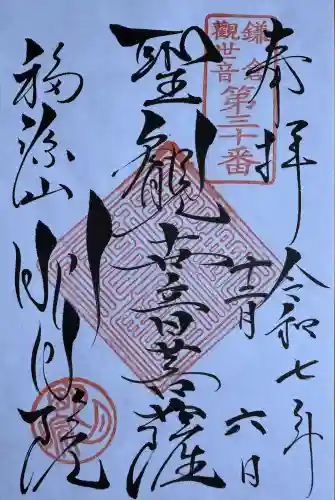 奉拝
令和七年
十二月
六日
鎌倉
觀世音
第三十番
聖觀世音菩薩
福源山
明月院